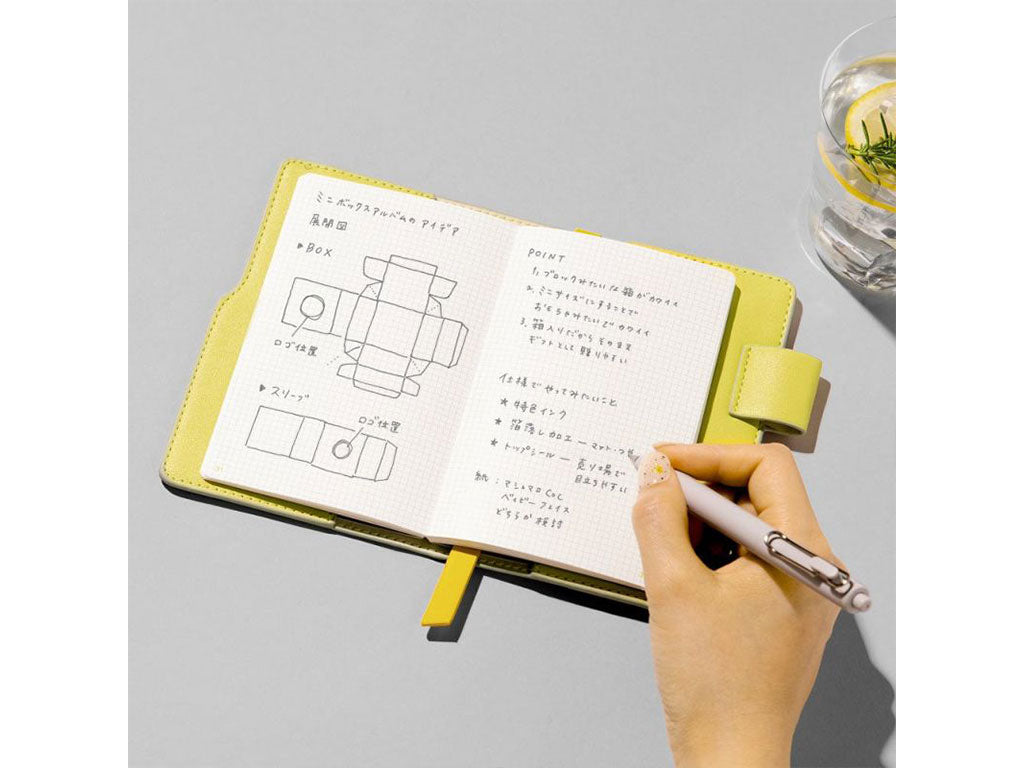 ミニボックスアルバムの アイデア
展開図
▶BOX
ロゴ位置
▶スリーブ
ロゴ位置
31
POINT
1. ブロックみたいな箱がカワイイ
2. ミニサイズにすることで
おもちゃみたいでカワイイ
3. 箱入りだから そのまま
ギフトとして贈りやすい
仕様でやってみたいこと
★ 特色インク
★ 箔落し加工 — マット・つや
★ トップシール — 売り場で
目立ちやすい
紙：マシュマロCoC
ベイビーフェイス
どちらか検討